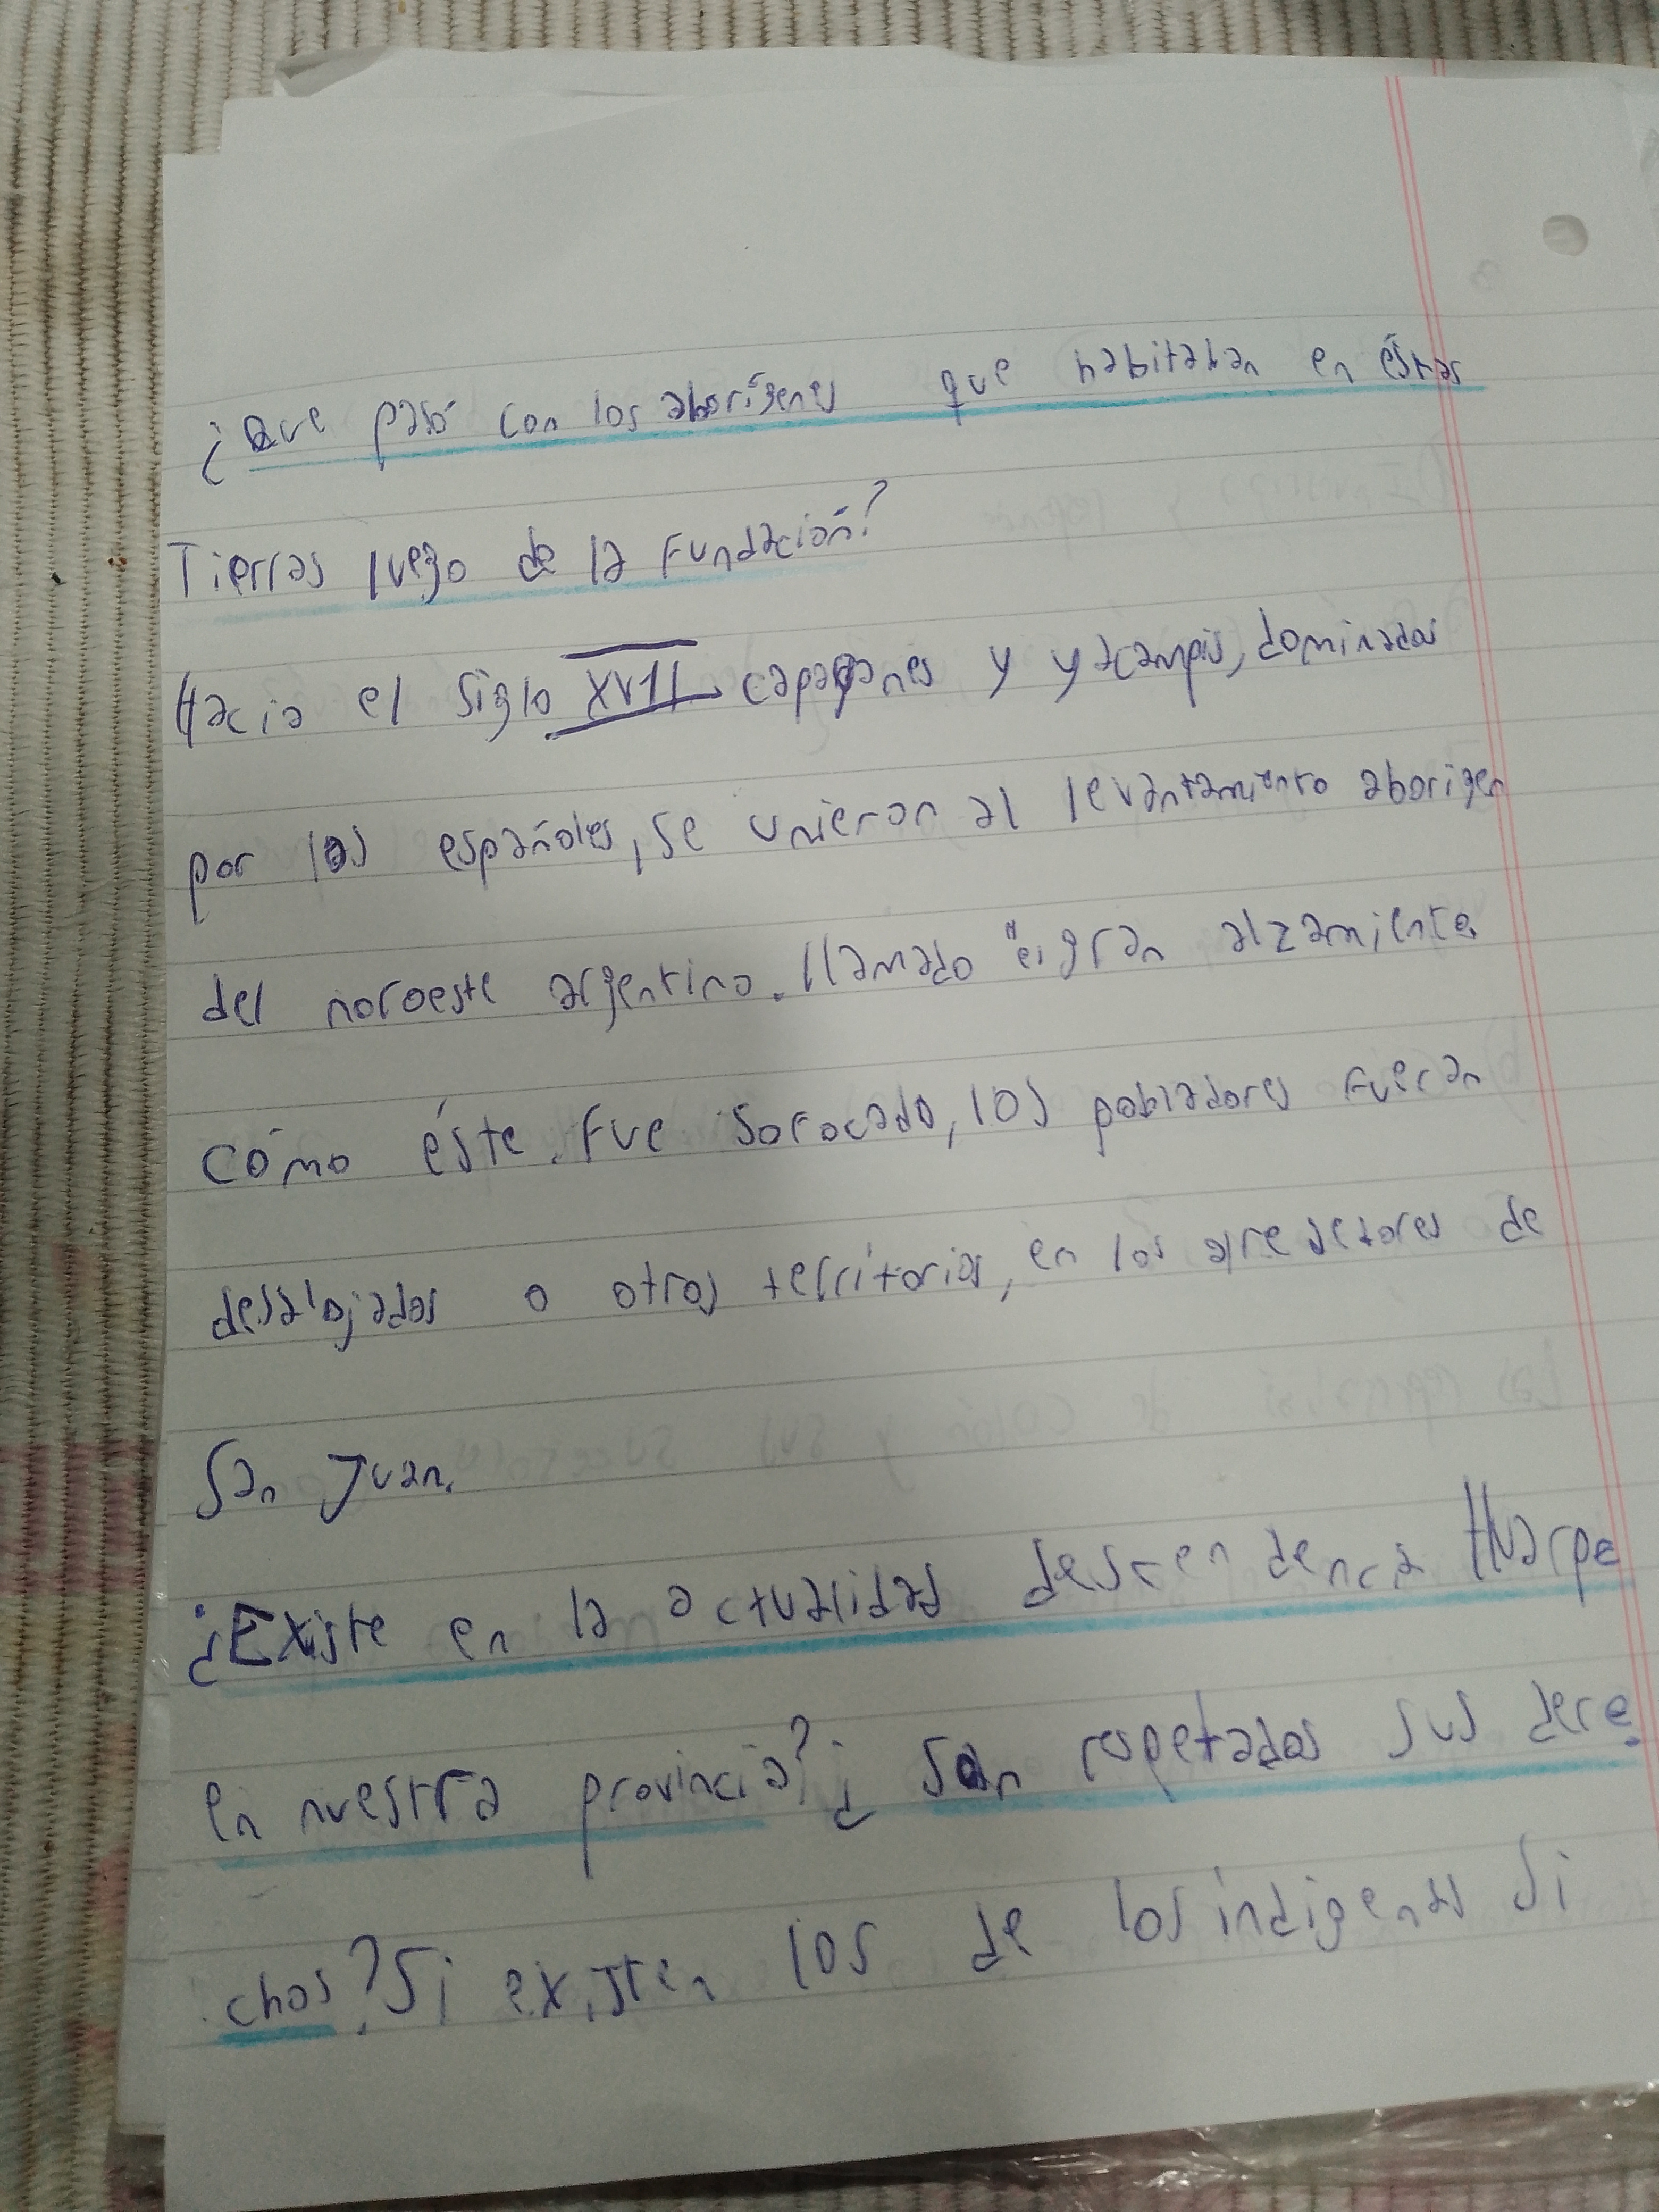 ¿Que pasó con los aborígenes que habitaban en éstas
Tierras luego de la Fundación?
Hacia el siglo XVII capayanes y yacampis, dominados
por los españoles, se unieron al levantamiento aborigen
del noroeste argentino. llamado "el gran alzamiento.
Cómo éste. fue sofocado, los pobladores fueran
desalojados o otros territorios, en los alrededores de
San Juan.
¿Existe en la actualidad descendencia Huarpe
en nuestra provincia? ¿ son respetados sus dere
chos? Si existen los de los indigenas si